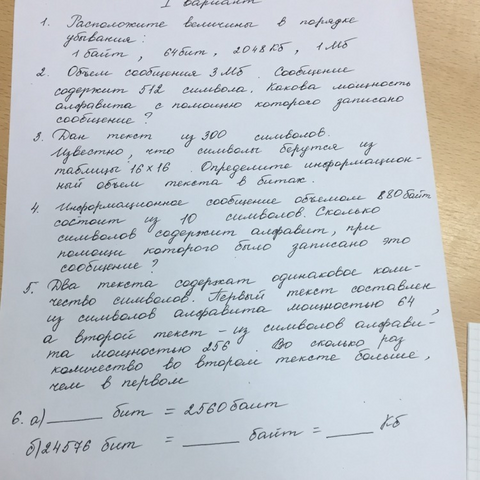 I вариант
1. Расположите величины в порядке
убывания:
1 байт, 64 бит, 2048 Кб, 1 Мб
2. Объем сообщения 3 Мб. Сообщение
содержит 512 символа. Какова мощность
алфавита с помощью которого записано
сообщение?
3. Дан текст из 300 символов.
Известно, что символы берутся из
таблицы 16×16. Определите информацион-
ный объем текста в битах.
4. Информационное сообщение объемом 880 байт
состоит из 10 символов. Сколько
символов содержит алфавит, при
помощи которого было записано это
сообщение?
5. Два текста содержат одинаковое коли-
чество символов. Первый текст составлен
из символов алфавита мощностью 64,
а второй текст - из символов алфави-
та мощностью 256. Во сколько раз
количество во втором тексте больше,
чем в первом
6. а) ____ бит = 2560 байт
б) 24576 бит = ____ байт = ____ Кб